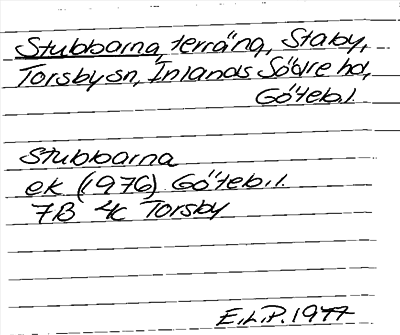 Stubbarna, terräng, Staby,
Torsby sn, Inlands Södre hd,
Göteb.l.
Stubbarna
ek (1976) Göteb.l.
7B 4c Torsby
E.L.P. 1977